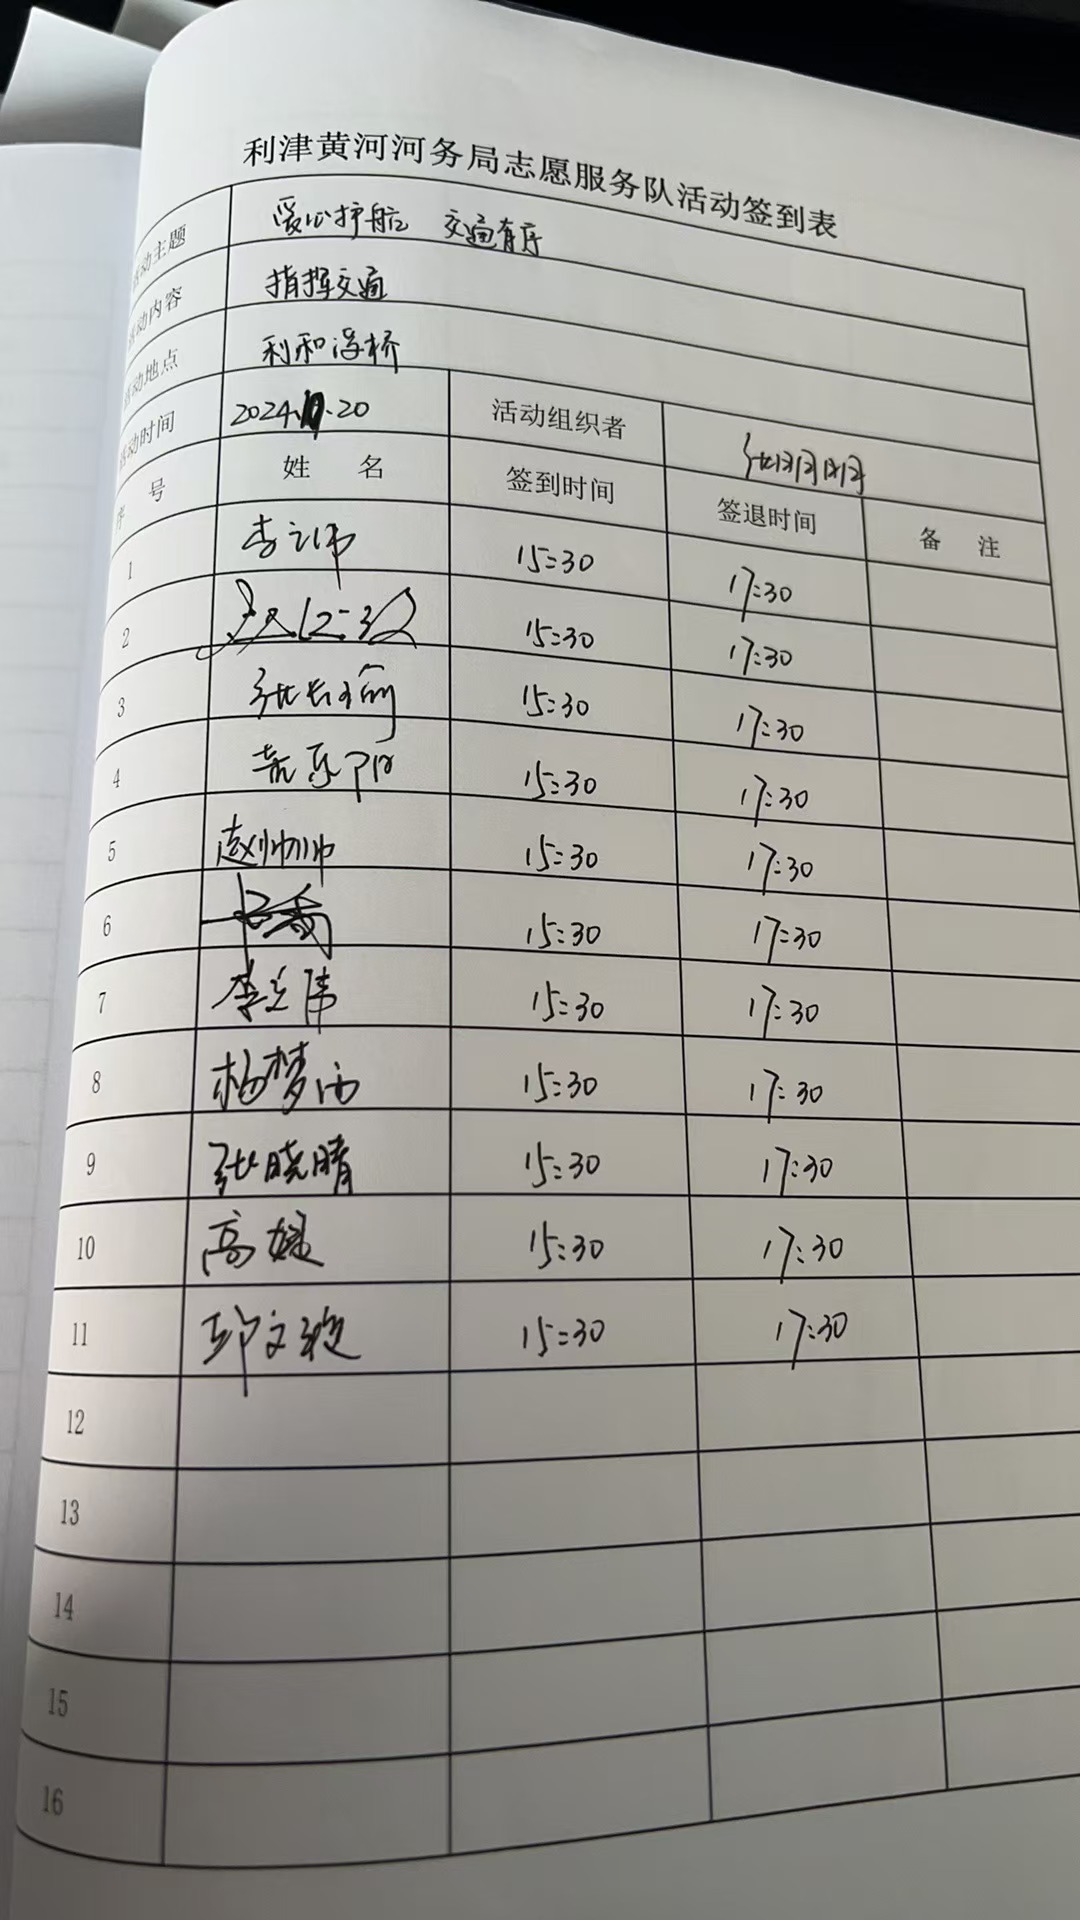 利津黄河河务局志愿服务队活动签到表
活动主题 爱心护航 交通有序
活动内容 指挥交通
活动地点 利和浮桥
活动时间 2024. .20 活动组织者
序号 姓名 签到时间 签退时间 备注
1 15:30 17:30
2 15:30 17:30
3 15:30 17:30
4 15:30 17:30
5 赵帅帅 15:30 17:30
6 15:30 17:30
7 李立伟 15:30 17:30
8 杨梦雨 15:30 17:30
9 张晓晴 15:30 17:30
10 高媛 15:30 17:30
11 15:30 17:30
12
13
14
15
16